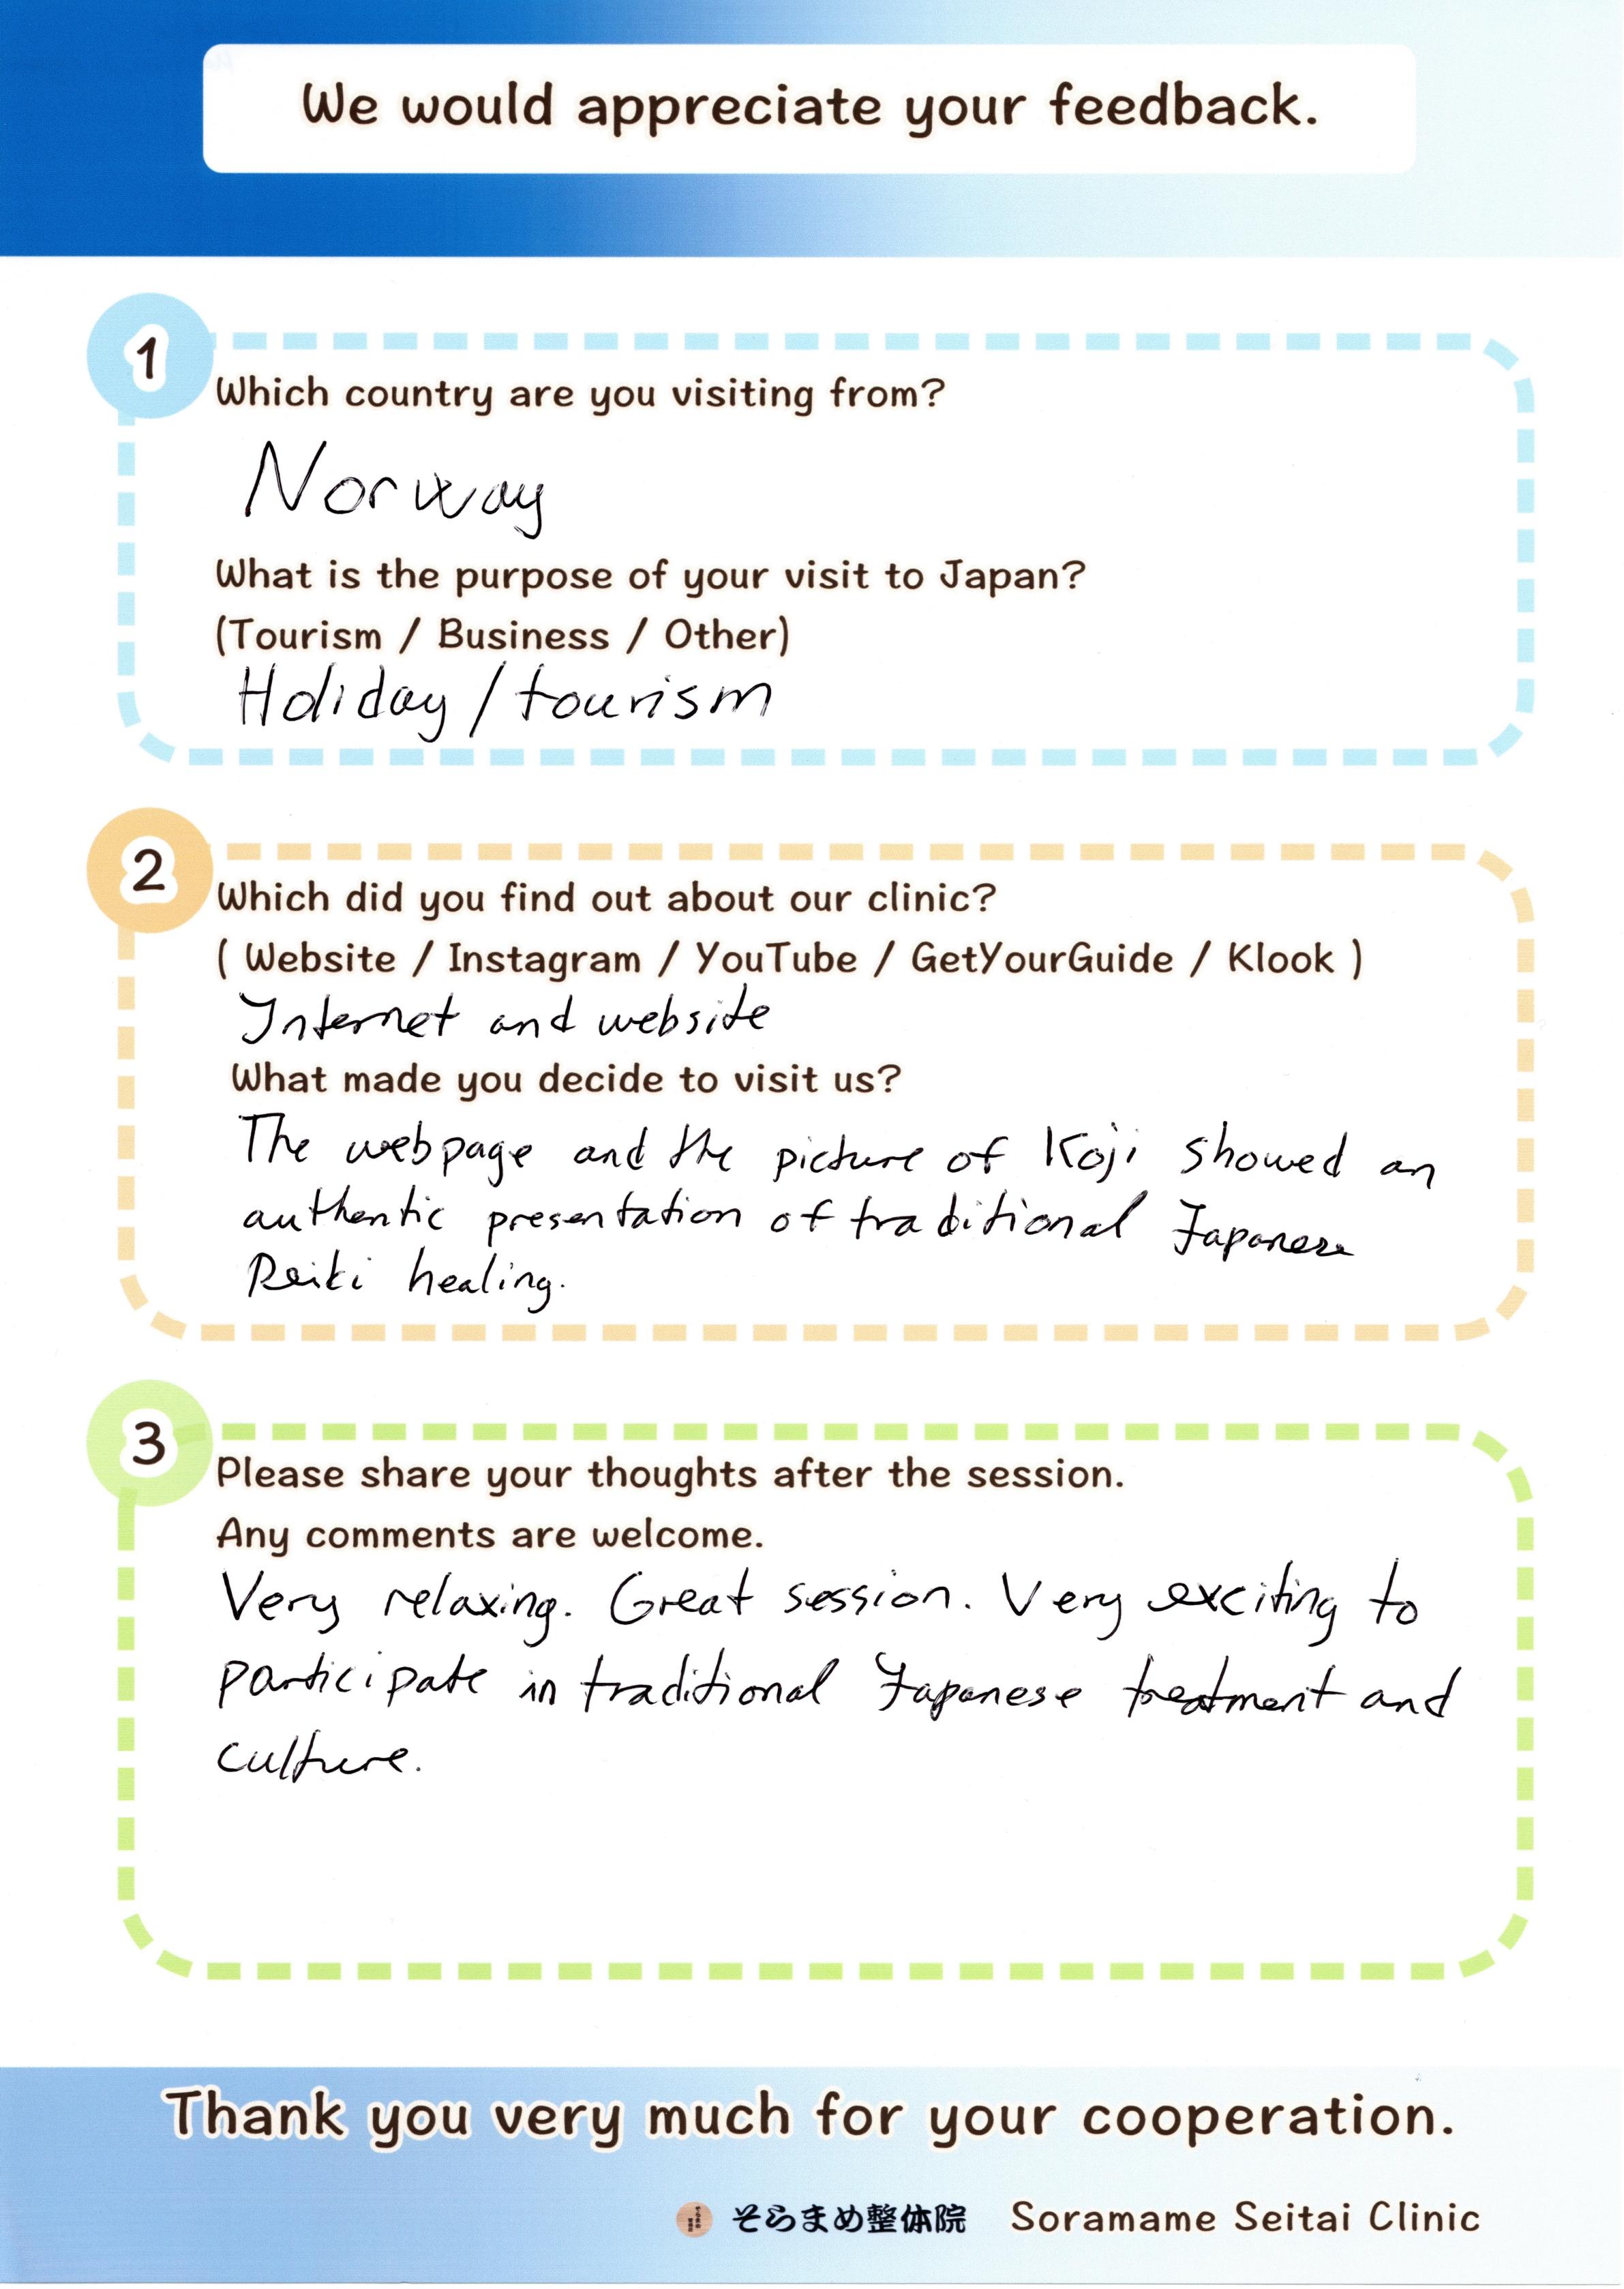 We would appreciate your feedback.
1
Which country are you visiting from?
Norway
What is the purpose of your visit to Japan?
(Tourism / Business / Other)
Holiday / tourism
2
Which did you find out about our clinic?
( Website / Instagram / YouTube / GetYourGuide / Klook )
Internet and website
What made you decide to visit us?
The webpage and the picture of Koji showed an
authentic presentation of traditional Japanese
Reiki healing.
3
Please share your thoughts after the session.
Any comments are welcome.
Very relaxing. Great session. Very exciting to
participate in traditional Japanese treatment and
culture.
Thank you very much for your cooperation.
そらまめ整体院 Soramame Seitai Clinic